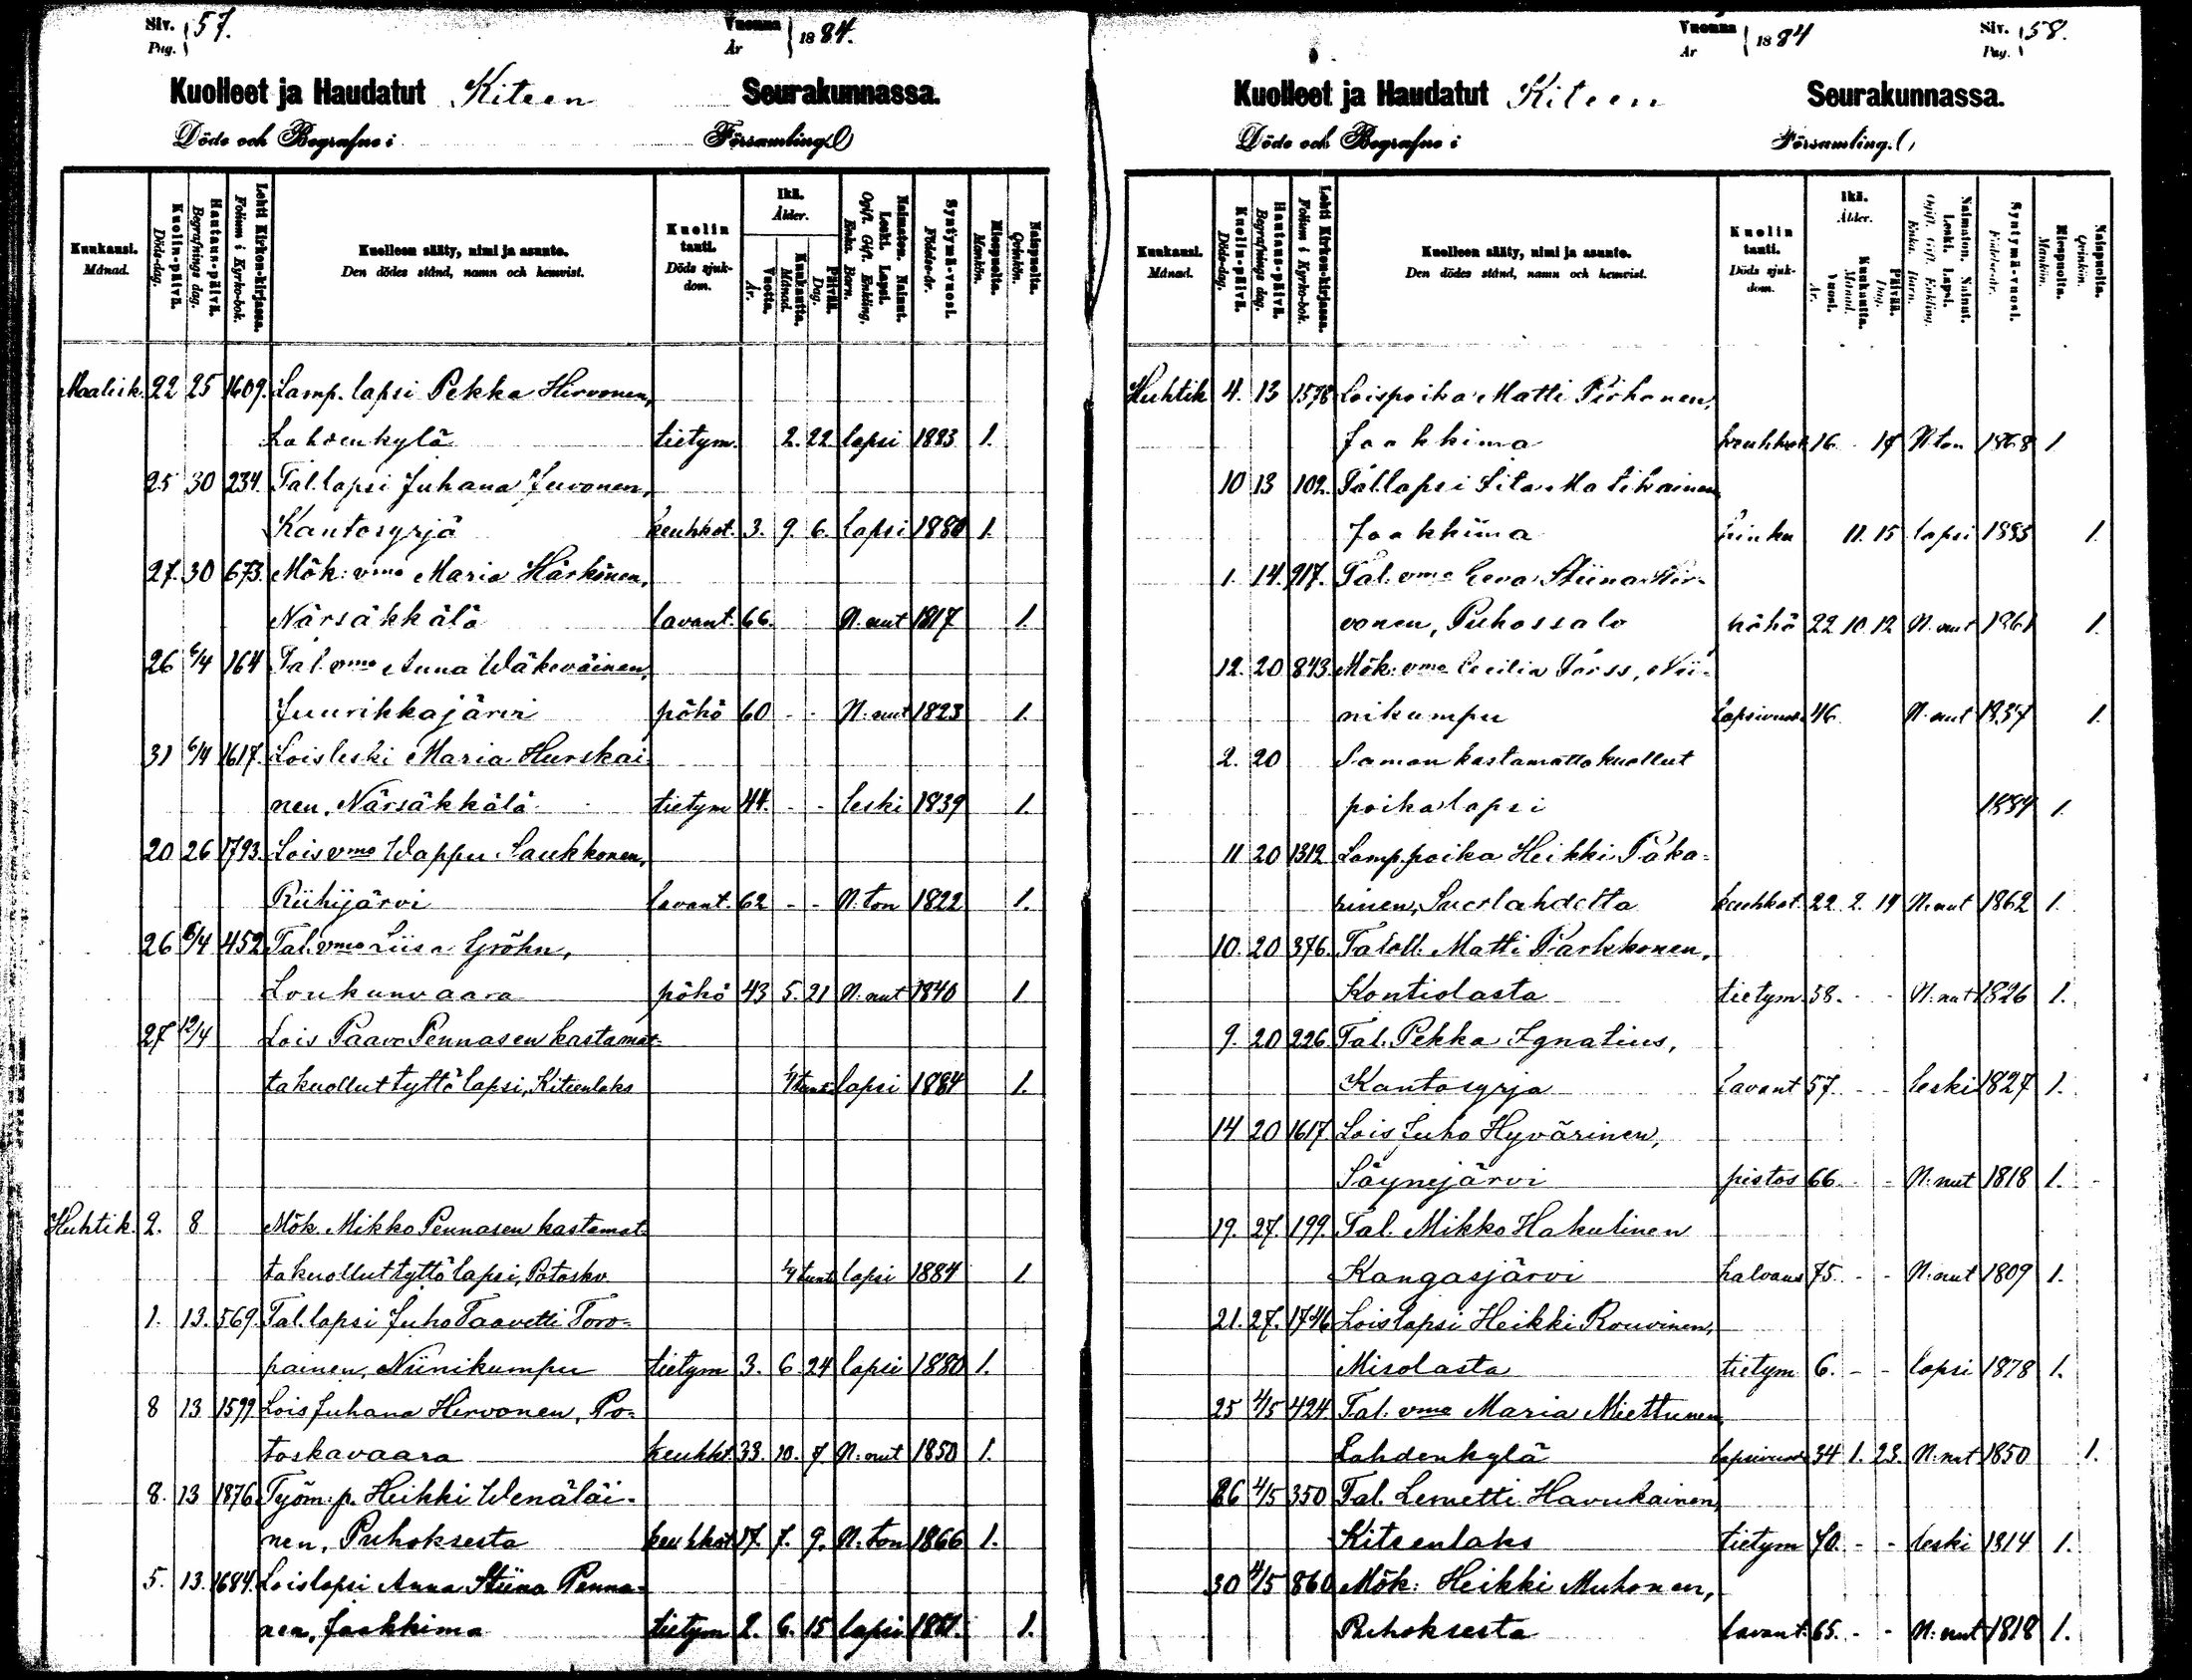 Siv. 57.
Pag.
Vuonna 1884.
År
Kuolleet ja Haudatut Kiteen Seurakunnassa.
Döde och Begrafne i Församling.
Kuukausi. Månad.
Kuolin-päivä. Döds-dag.
Hautaus-päivä. Begrafnings dag.
Lehti Kirkon-kirjassa. Folium i Kyrko-bok.
Kuolleen sääty, nimi ja asunto. Den dödes stånd, namn och hemvist.
Kuolin tauti. Döds sjukdom.
Ikä. Ålder.
Vuotta. År.
Kuukautta. Månad.
Päivää. Dag.
Naimaton. Nainut. Leski. Lapsi. Ogift. Gift. Enkling. Enka. Barn.
Syntymä-vuosi. Födelse-år.
Miespuolta. Mankön.
Naispuolta. Qvinkön.
Maalisk. 22 25 1609. Lamp. lapsi Pekka Hirvonen,
Lahdenkylä tietym. 2. 22 lapsi 1883 1.
25 30 234. Tal. lapsi Juhana Juvonen,
Kantosyrjä keuhkot. 3. 9. 6. lapsi 1880 1.
27. 30 673. Mök: vmo Maria Härkönen,
Närsäkkälä lavant. 66. N. nut 1817 1.
26 6/4 164 Tal. vmo Anna Wäkeväinen,
Juurikkajärvi pöhö 60 - - N. nut 1823 1.
31 6/4 1617. Loisleski Maria Hurskai-
nen, Närsäkkälä tietym 44. - - leski 1839 1.
20 26 1793. Lois vmo Wappu Saukkonen,
Riihijärvi lavant. 62 - - N. ton 1822 1.
26 6/4 452 Tal. vmo Liisa Gröhn,
Loukunvaara pöhö 43 5. 21 N. nut 1840 1
27 12/4 Lois Paavo Pennasen kastamat-
ta kuollut tyttö lapsi, Kiteenlaks lapsi 1884 1.
Huhtik. 2. 8 Mök. Mikko Pennasen kastamat-
ta kuollut tyttö lapsi, Potoskv. lapsi 1884 1
1. 13. 569. Tal. lapsi Juho Taavetti Toro-
painen, Niinikumpu tietym 3. 6. 24 lapsi 1880 1.
8 13 1599 Lois Juhana Hirvonen, Po-
toskavaara keuhkt. 33. 10. 7. N. nut 1850 1.
8. 13 1876. Työm. p. Heikki Wenäläi-
nen, Puhoksesta keuhkot. 17. 7. 9. N. ton 1866 1.
5. 13. 1684. Loislapsi Anna Stiina Penna-
nen, Jaakkima tietym 2. 6. 15 lapsi 1.
Vuonna 1884
År
Siv. 58.
Pag.
Kuolleet ja Haudatut Kiteen Seurakunnassa.
Döde och Begrafne i Församling.
Kuukausi. Månad.
Kuolin-päivä. Döds-dag.
Hautaus-päivä. Begrafnings dag.
Lehti Kirkon-kirjassa. Folium i Kyrko-bok.
Kuolleen sääty, nimi ja asunto. Den dödes stånd, namn och hemvist.
Kuolin tauti. Döds sjukdom.
Ikä. Ålder.
Vuosi. År.
Kuukautta. Månad.
Päivää. Dag.
Naimaton. Nainut. Leski. Lapsi. Ogift. Gift. Enkling. Enka. Barn.
Syntymä-vuosi. Födelse-år.
Miespuolta. Mankön.
Naispuolta. Qvinkön.
Huhtik 4. 13 1578 Loispoika Matti Pirhonen,
Jaakkima keuhkot 16. - 14 N. ton 1868 1
10 13 102. Tal. lapsi Iita Matikainen
Jaakkima hinku 11. 15 lapsi 1883 1.
1. 14. 917. Tal. vmo Eeva Stiina Hir-
vonen, Puhossalo pöhö 22 10. 12 N. nut 1861 1.
12. 20 843. Mök: vmo Cecilia Forss, Nii-
nikumpu lapsivuod. 46. N. nut 1837 1.
2. 20 Saman kastamatta kuollut
poika lapsi 1884 1.
11 20 1312 Lamp. poika Heikki Paka-
rinen, Suorlahdelta keuhkot. 22. 2. 19 N. nut 1862 1.
10. 20 376. Taloll. Matti Parkkonen,
Kontiolasta tietym. 58. - - N. nut 1826 1.
9. 20 226. Tal. Pekka Ignatius,
Kantosyrja Lavant 57. - - leski 1827 1.
14 20 1617. Lois Juho Hyvärinen,
Säynejärvi pistos 66. - - N. nut 1818 1. -
19. 27. 199. Tal. Mikko Hakulinen
Kangasjärvi halvaus 75. - - N. nut 1809 1.
21. 27. 1746 Loislapsi Heikki Rouvinen,
Misolasta tietym 6. - - lapsi 1878 1.
25 4/5 424 Tal. vmo Maria Miettunen,
Lahdenkylä lapsivuod 34 1. 23. N. nut 1850 1.
26 4/5 350 Tal. Lemetti Havukainen,
Kiteenlaks tietym 70. - - leski 1814 1.
30 4/5 860 Mök: Heikki Muhonen,
Puhoksesta lavant. 65. - - N. nut 1818 1.